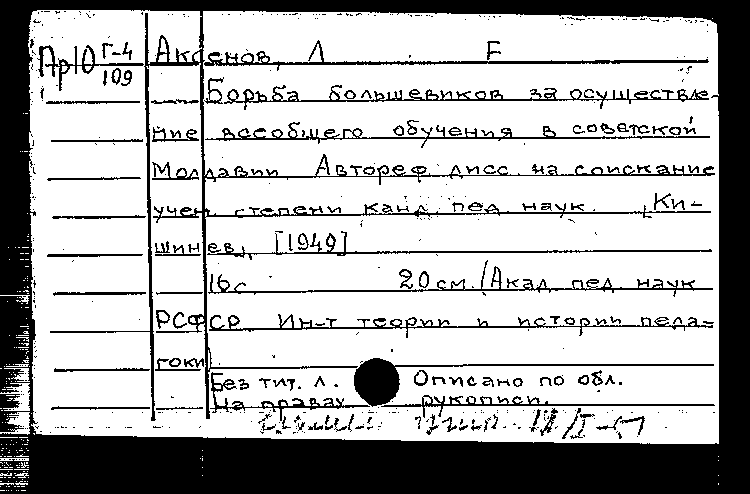 Пр10 Г-4/109 Аксенов, Л. Е
Борьба большевиков за осуществле-
ние всеобщего обучения в советской
Молдавии. Автореф. дисс. на соискание
учен. степени канд. пед. наук. [Ки-
шинев], [1949]
16 с. 20 см. (Акад. пед. наук
РСФСР. Ин-т теории и истории педа-
гоки)
Без тит. л. Описано по обл.
На правах рукописи.